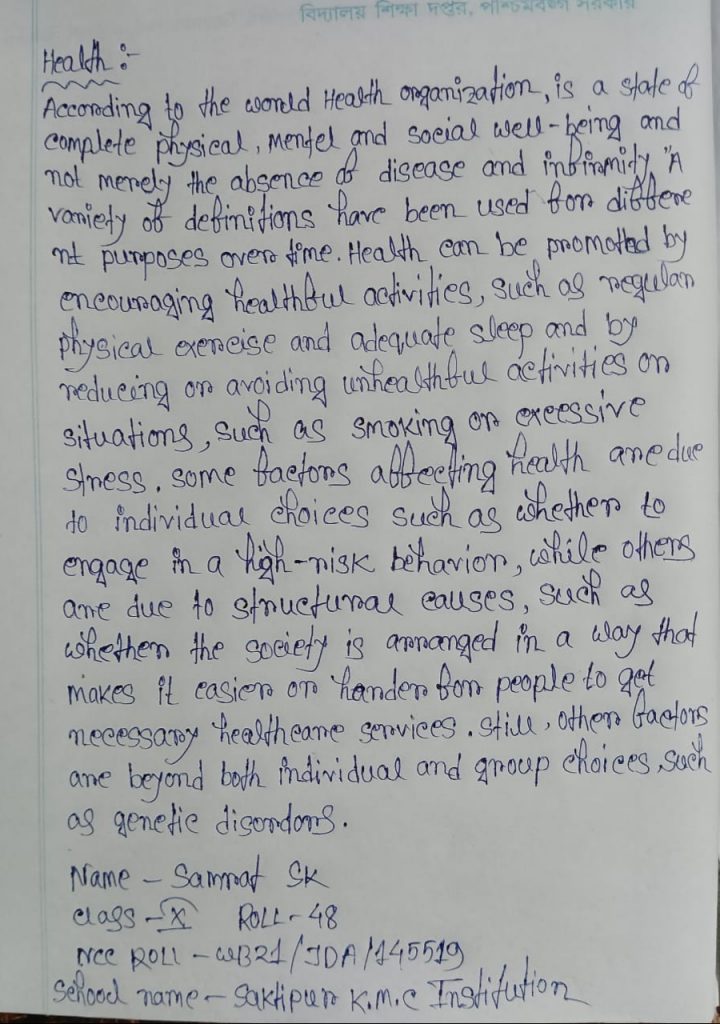 বিদ্যালয় শিক্ষা দপ্তর, পশ্চিমবঙ্গ সরকার
Health :-
According to the world Health organization, is a state of
complete physical, mentel and social well-being and
not merely the absence of disease and infirmity, "A
variety of definitions have been used for differe
nt purposes over time. Health can be promoted by
encouraging healthful activities, such as regular
physical exercise and adequate sleep and by
reducing or avoiding unhealthful activities or
situations, such as smoking or excessive
stress. some factors affecting health are due
to individual choices such as whether to
engage in a high-risk behavior, while others
are due to structural causes, such as
whether the society is arranged in a way that
makes it easier or harder for people to get
necessary healthcare services. still, other factors
are beyond both individual and group choices, such
as genetic disordors.
Name - Samrat SK
class - X ROLL - 48
NCC ROLL - WB21/JDA/145519
School name - Saktipur K.M.C Institution